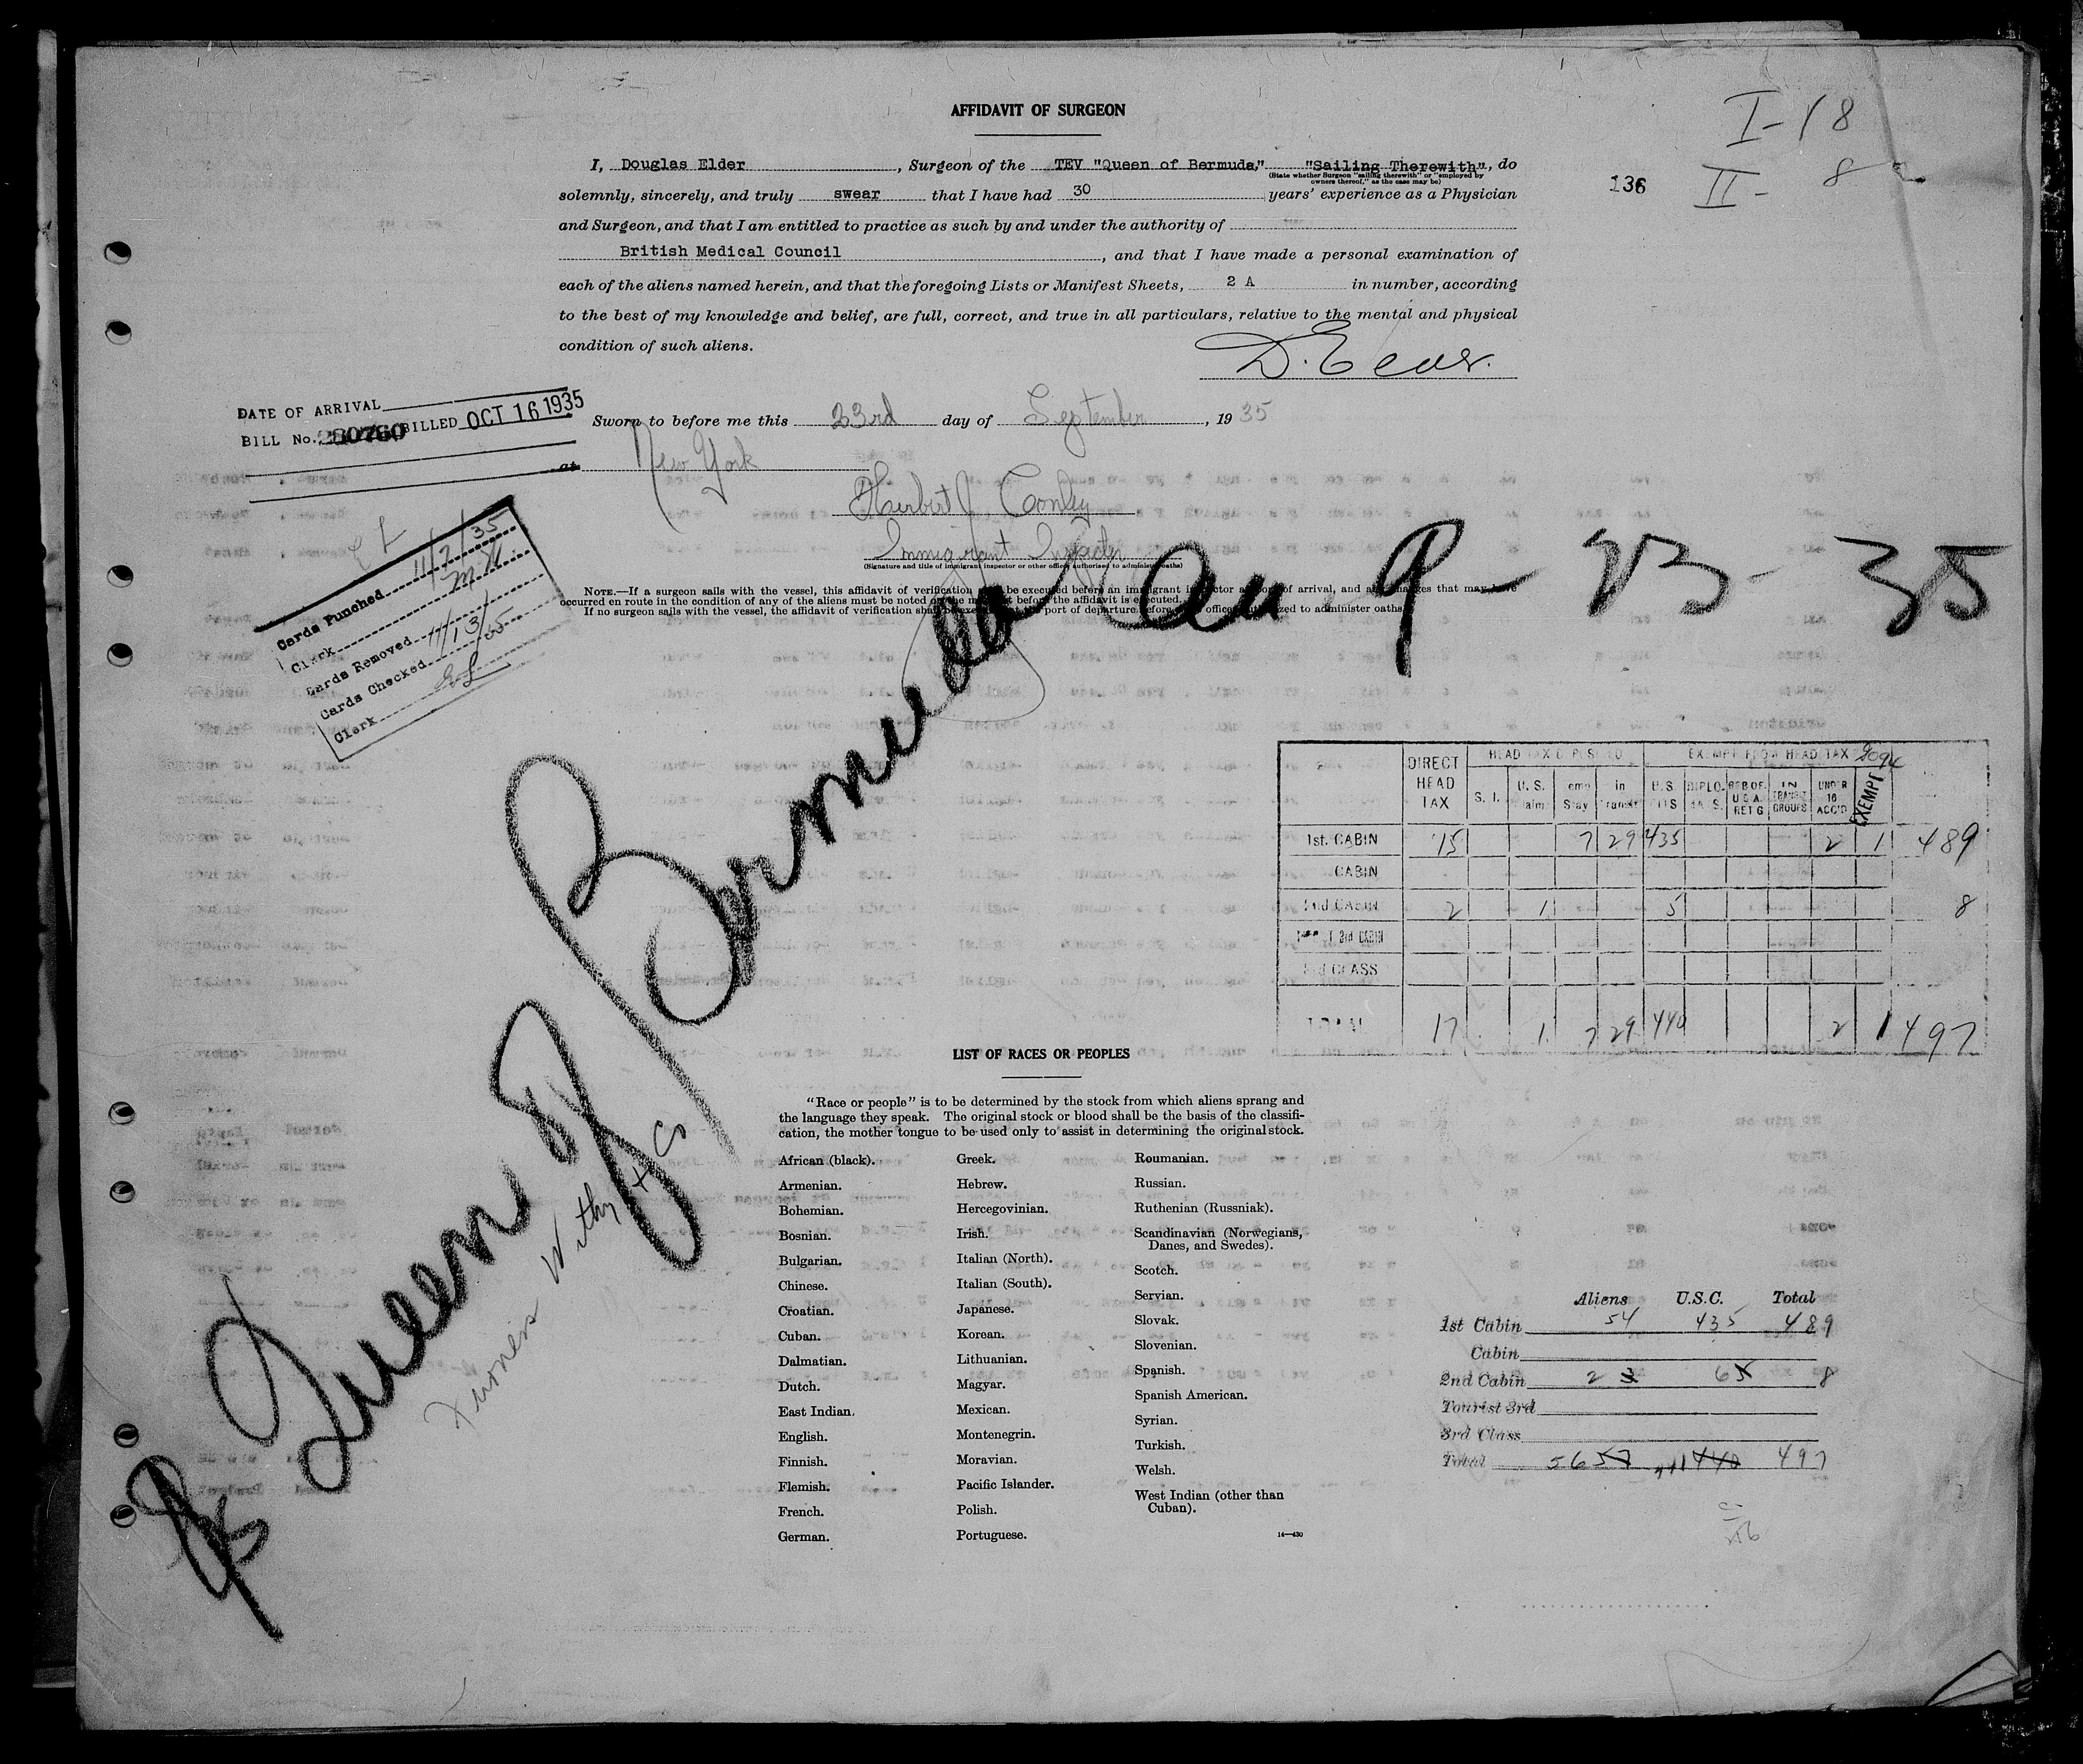 AFFIDAVIT OF SURGEON
I, Douglas Elder, Surgeon of the TEV "Queen of Bermuda," "Sailing Therewith", do
(State whether Surgeon "sailing therewith" or "employed by
owners thereof," as the case may be)
solemnly, sincerely, and truly swear that I have had 30 years' experience as a Physician
and Surgeon, and that I am entitled to practice as such by and under the authority of
British Medical Council, and that I have made a personal examination of
each of the aliens named herein, and that the foregoing Lists or Manifest Sheets, 2 A in number, according
to the best of my knowledge and belief, are full, correct, and true in all particulars, relative to the mental and physical
condition of such aliens.
I-18
136 II- 8
DATE OF ARRIVAL
BILL No. BILLED OCT 16 1935
Sworn to before me this 23rd day of September, 1935
at New York
Herbert J. Conley
Immigrant Inspector
(Signature and title of immigrant inspector or other officer authorized to administer oaths)
NOTE.—If a surgeon sails with the vessel, this affidavit of verification be executed before an immigrant inspector of arrival, and changes that may have
occurred en route in the condition of any of the aliens must be noted on the before the affidavit is executed.
If no surgeon sails with the vessel, the affidavit of verification shall be executed at port of departure before officer authorized to administer oaths.
Cards Punched 11/2/35
Clerk
Cards Removed 11/13/35
Cards Checked
Clerk
Queen of Bermuda au 9-23-35
Furness Withy + Co
DIRECT HEAD TAX HEAD TAX DEPOSITED EXEMPT FROM HEAD TAX
S. I. U. S. in Transit U.S. DIPLO. IN TRANSIT GROUPS UNDER 16 ACC'D EXEMPT
1st. CABIN 15 7 29 435 2 1 489
CABIN
2nd CABIN 2 1 5 8
3rd CABIN
3rd CLASS
TOTAL 17 1 7 29 440 2 1 497
LIST OF RACES OR PEOPLES
"Race or people" is to be determined by the stock from which aliens sprang and
the language they speak. The original stock or blood shall be the basis of the classifi-
cation, the mother tongue to be used only to assist in determining the original stock.
African (black).
Armenian.
Bohemian.
Bosnian.
Bulgarian.
Chinese.
Croatian.
Cuban.
Dalmatian.
Dutch.
East Indian.
English.
Finnish.
Flemish.
French.
German.
Greek.
Hebrew.
Hercegovinian.
Irish.
Italian (North).
Italian (South).
Japanese.
Korean.
Lithuanian.
Magyar.
Mexican.
Montenegrin.
Moravian.
Pacific Islander.
Polish.
Portuguese.
Roumanian.
Russian.
Ruthenian (Russniak).
Scandinavian (Norwegians,
Danes, and Swedes).
Scotch.
Servian.
Slovak.
Slovenian.
Spanish.
Spanish American.
Syrian.
Turkish.
Welsh.
West Indian (other than
Cuban).
14—430
Aliens U.S.C. Total
1st Cabin 54 435 489
Cabin
2nd Cabin 2 3 6 5 8
Tourist 3rd
3rd Class
Total 56 57 441 440 497